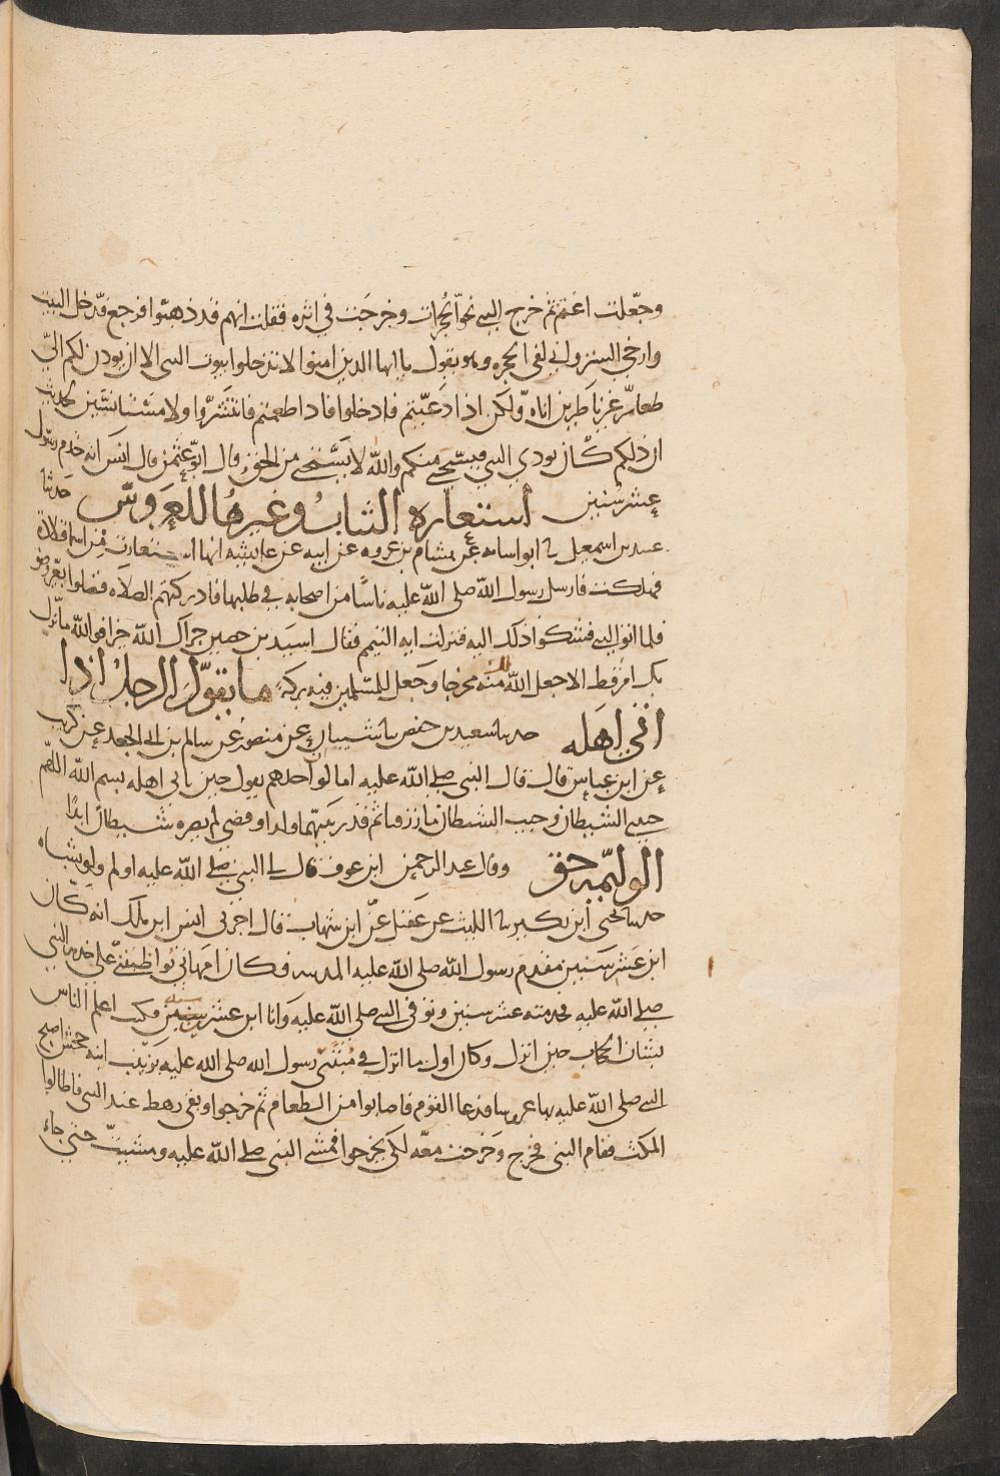 وجعلت اغتم ثم خرج النبي نحو الحجرات وخرجت في اثره فقلت انهم قد ذهبوا فرجع فدخل البيت
وارخى الستر واني لفي الحجره وهو يقول يا ايها الذين امنوا لا تدخلوا بيوت النبي الا ان يوذن لكم الى
طعام غير ناظرين اناه ولكن اذا دعيتم فادخلوا فاذا طعمتم فانتشروا ولا مستانسين لحديث
ان ذلكم كان يوذي النبي فيستحي منكم والله لا يستحي من الحق وقال ابو عثمن قال انس انه خدم رسول
عشر سنين استعاره الثياب للعروس وغيرها حدثنا
عبيد بن اسمعيل نا ابو اسامه عن هشام بن عروه عن ابيه عن عايشه انها استعارت من اسما قلادة
فهلكت فارسل رسول الله صلى الله عليه ناسا من اصحابه في طلبها فادركتهم الصلاه فصلوا بغير وضو
فلما اتوا النبي شكوا ذلك اليه فنزلت ايه التيمم فقال اسيد بن حضير جزاك الله خيرا فوالله ما نزل
بك امر قط الا جعل الله لك منه مخرجا وجعل للمسلمين فيه بركة ما يقول الرجل اذا
اتى اهله حدثنا سعد بن حفص نا شيبان عن منصور عن سالم بن ابي الجعد عن كريب
عن ابن عباس قال قال النبي صلى الله عليه اما لو ان احدهم يقول حين ياتي اهله بسم الله اللهم
جنبني الشيطان وجنب الشيطان ما رزقتنا ثم قدر بينهما ولد او قضي لم يضره شيطان ابدا
الوليمه حق وقال عبد الرحمن ابن عوف قال لي النبي صلى الله عليه اولم ولو بشاه
حدثنا يحيى ابن بكير نا الليث عن عقيل عن ابن شهاب قال اخبرني انس ابن ملك انه كان
ابن عشر سنين مقدم رسول الله صلى الله عليه المدينه فكان امهاتي يواظبنني على خدمة النبي
صلى الله عليه فخدمته عشر سنين وتوفي النبي صلى الله عليه وانا ابن عشرين سنه فكنت اعلم الناس
بشان الحجاب حين انزل وكان اول ما انزل في مبتنى رسول الله صلى الله عليه بزينب ابنه جحش اصبح
النبي صلى الله عليه بها عروسا فدعا القوم فاصابوا من الطعام ثم خرجوا وبقي رهط عند النبي فاطالوا
المكث فقام النبي فخرج وخرجت معه لكي يخرجوا فمشى النبي صلى الله عليه ومشيت حتى جاء